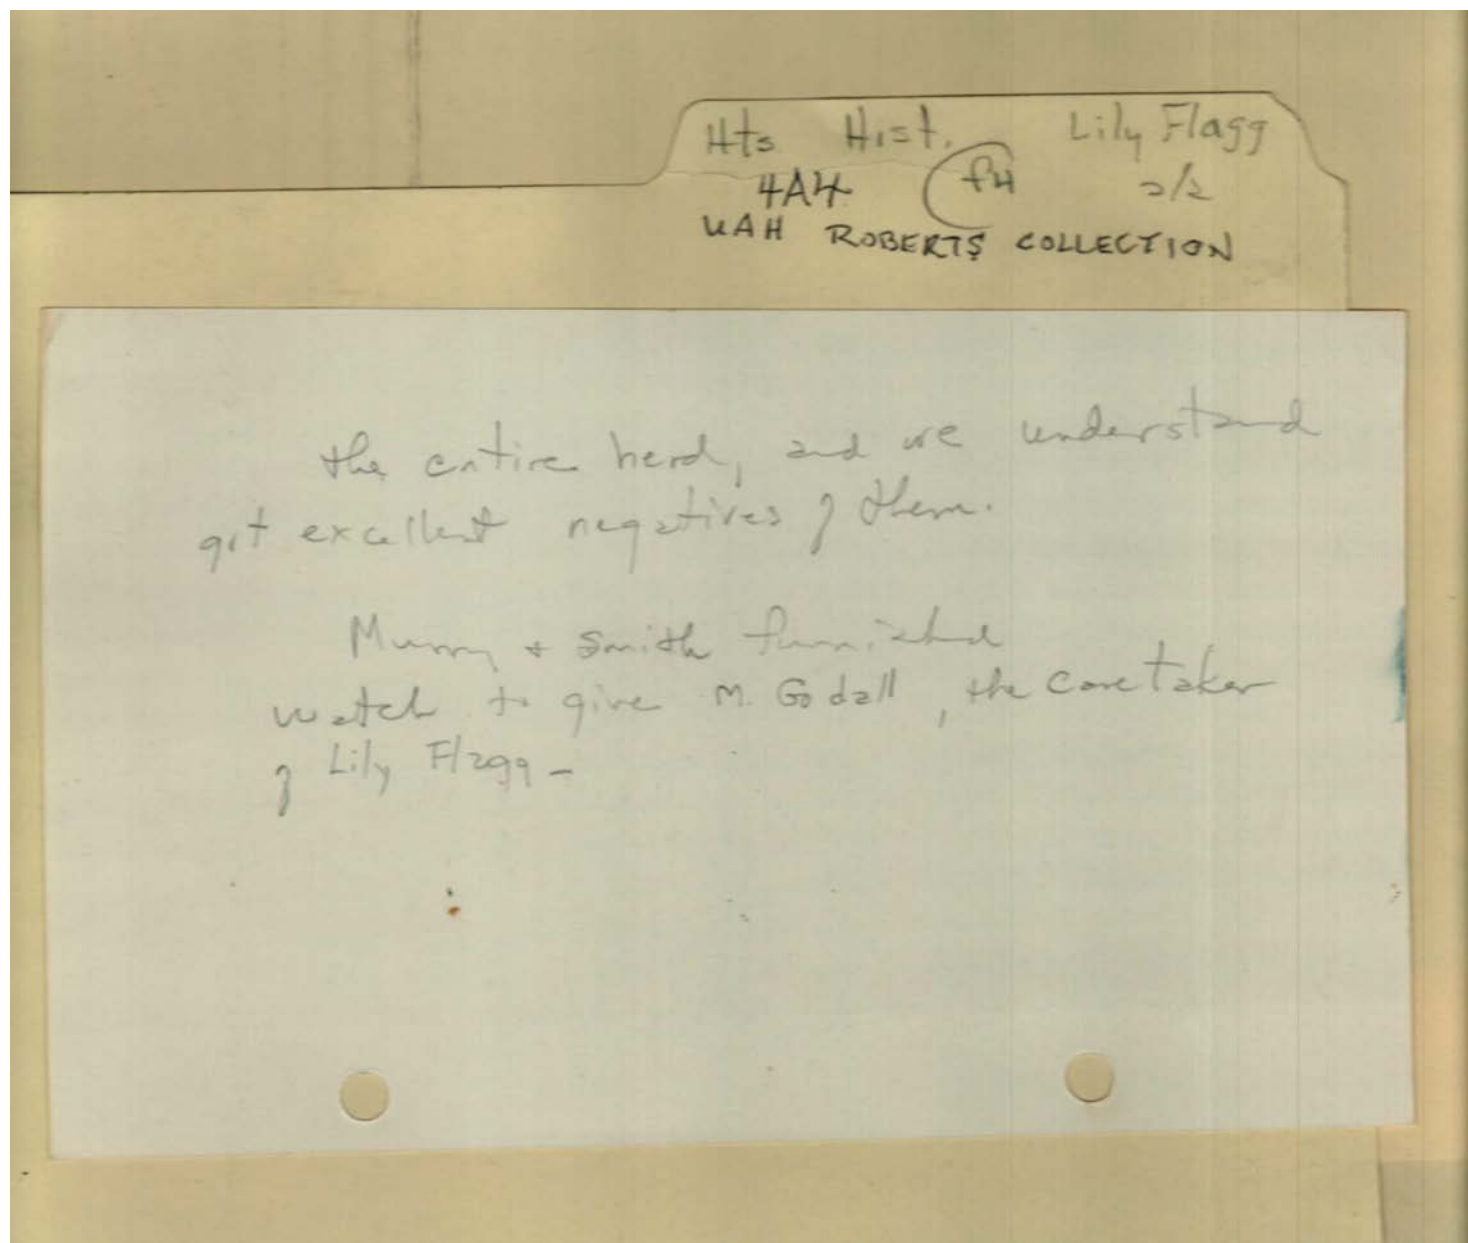 Hts Hist. Lily Flagg
4A4 f4 2/2
UAH ROBERTS COLLECTION
the entire herd, and we understand
got excellent negatives of them.
Murry & Smith furnished
watch to give M. Godall, the caretaker
of Lily Flagg -